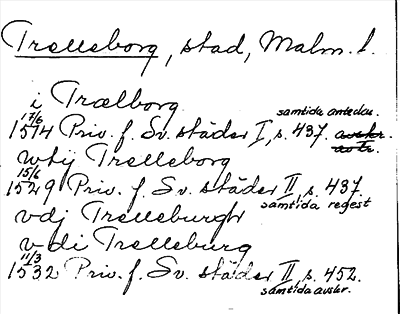 Trelleborg, stad, Malm. l.
i Trælborg
17/6 samtida anteckn.
1514 Priv. f. Sv. städer I, s. 437. avskr.
wtij Trelleborg
15/6
1529 Priv. f. Sv. städer II, s. 437.
samtida regest
vdj Trelleburgh
v di Trelleburg
11/3
1532 Priv. f. Sv. städer II, s. 452.
samtida avskr.